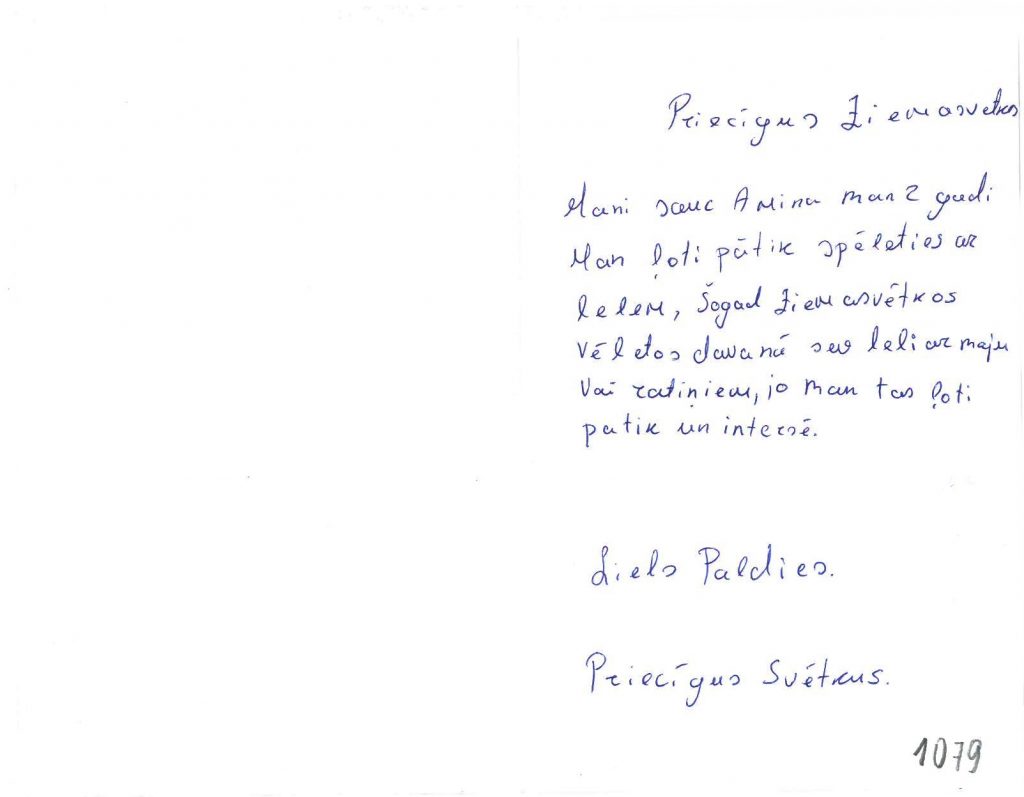 Priecīgus Ziemasvetkos
Mani sauc Amina man 2 gadi
Man ļoti pātik spēleties ar
lelem, Šogad Ziemasvētkos
Vēletos davanā sev leli ar maju
Vai ratiņiem, jo man tas ļoti
patik un intersē.
Liels Paldies.
Priecīgus Svētkus.
1079